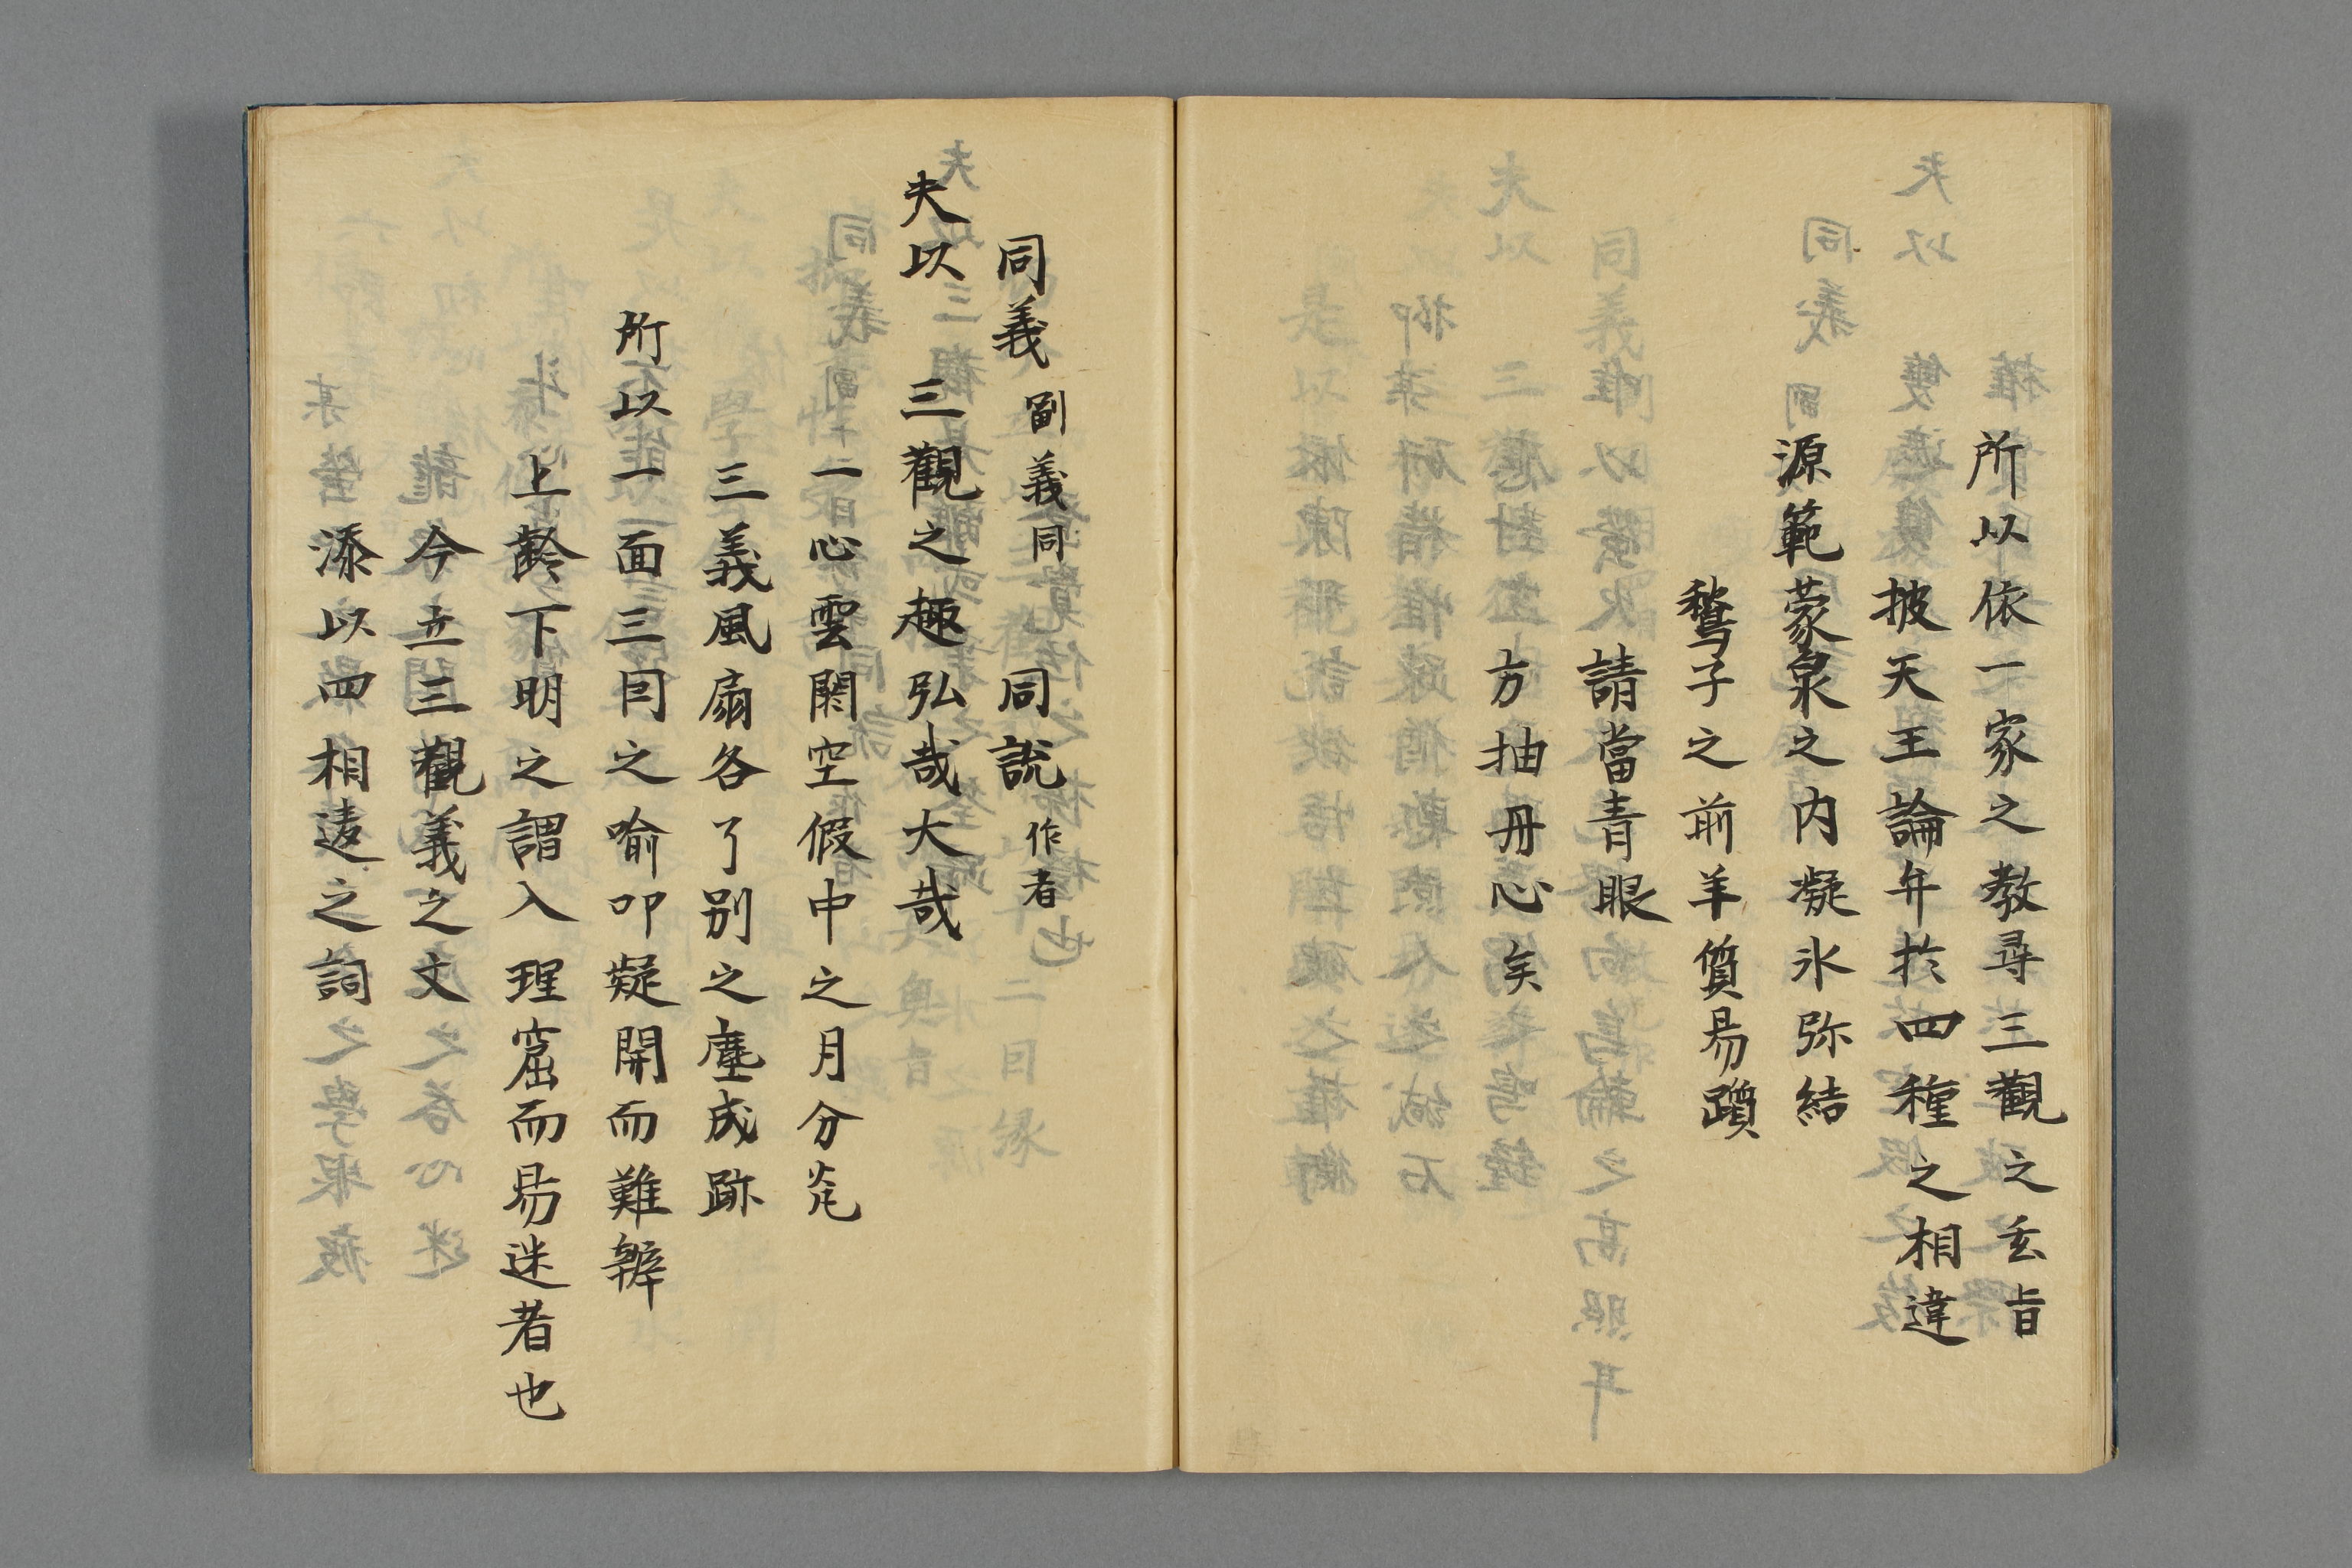 所以依一家之教尋三觀之玄旨
披天王論弁於四種之相違
源範蒙泉之内凝氷弥結
鶖子之前羊質易躓
請當青眼
方抽丹心矣
同義 副義同 同説 作者
夫以 三觀之趣弘哉大哉
一心雲閑空假中之月分光
三義風扇各了別之塵成跡
所以一面三目之喩叩疑開而難辨
上齡下明之謂入理窟而易迷者也
今立三觀義之文
添以四相違之詞